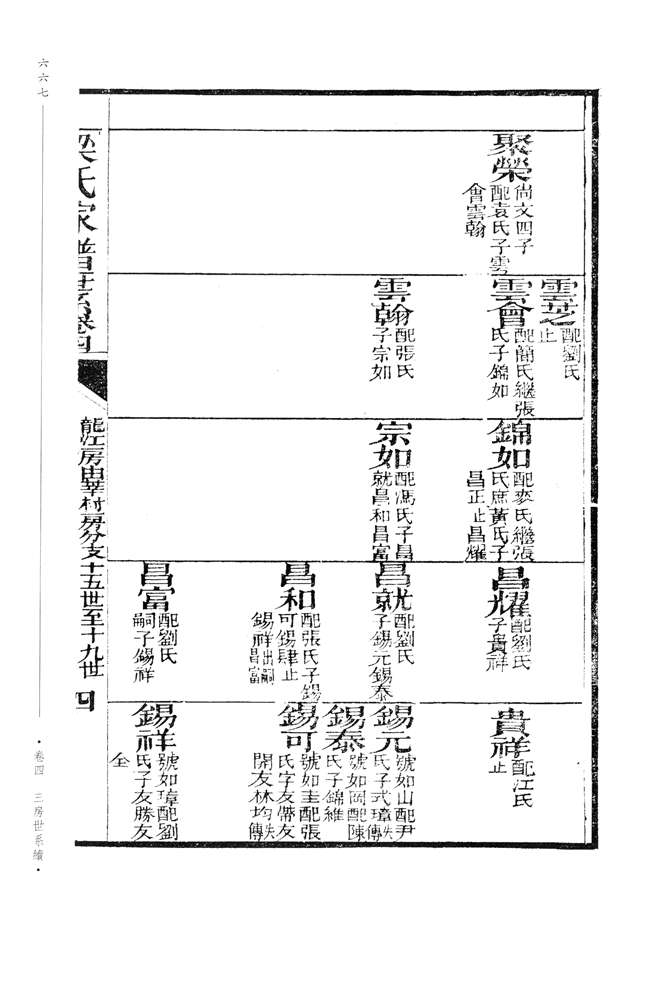 聚榮
尚文四子
配袁氏子雲
會雲翰
雲芝
配劉氏
止
雲會
配簡氏繼張
氏子錦如
雲翰
配張氏
子宗如
錦如
配麥氏繼張
氏庶黃氏子
昌正止昌耀
宗如
配馮氏子昌
就昌和昌富
昌耀
配劉氏
子貴祥
昌就
配劉氏
子錫元錫泰
昌和
配張氏子錫
可錫肆止
錫祥出嗣昌富
昌富
配劉氏
嗣子錫祥
貴祥
配江氏
止
錫元
號如山配尹
氏子式璋佚傳
錫泰
號如岡配陳
氏子錦維
錫可
號如圭配張
氏字友帶友
開友林均佚傳
錫祥
號如璋配劉
氏子友勝友
全
梁氏家譜世系卷四
龍江房由華村房分支十五世至十九世
四
六六七
·卷四 三房世系續·